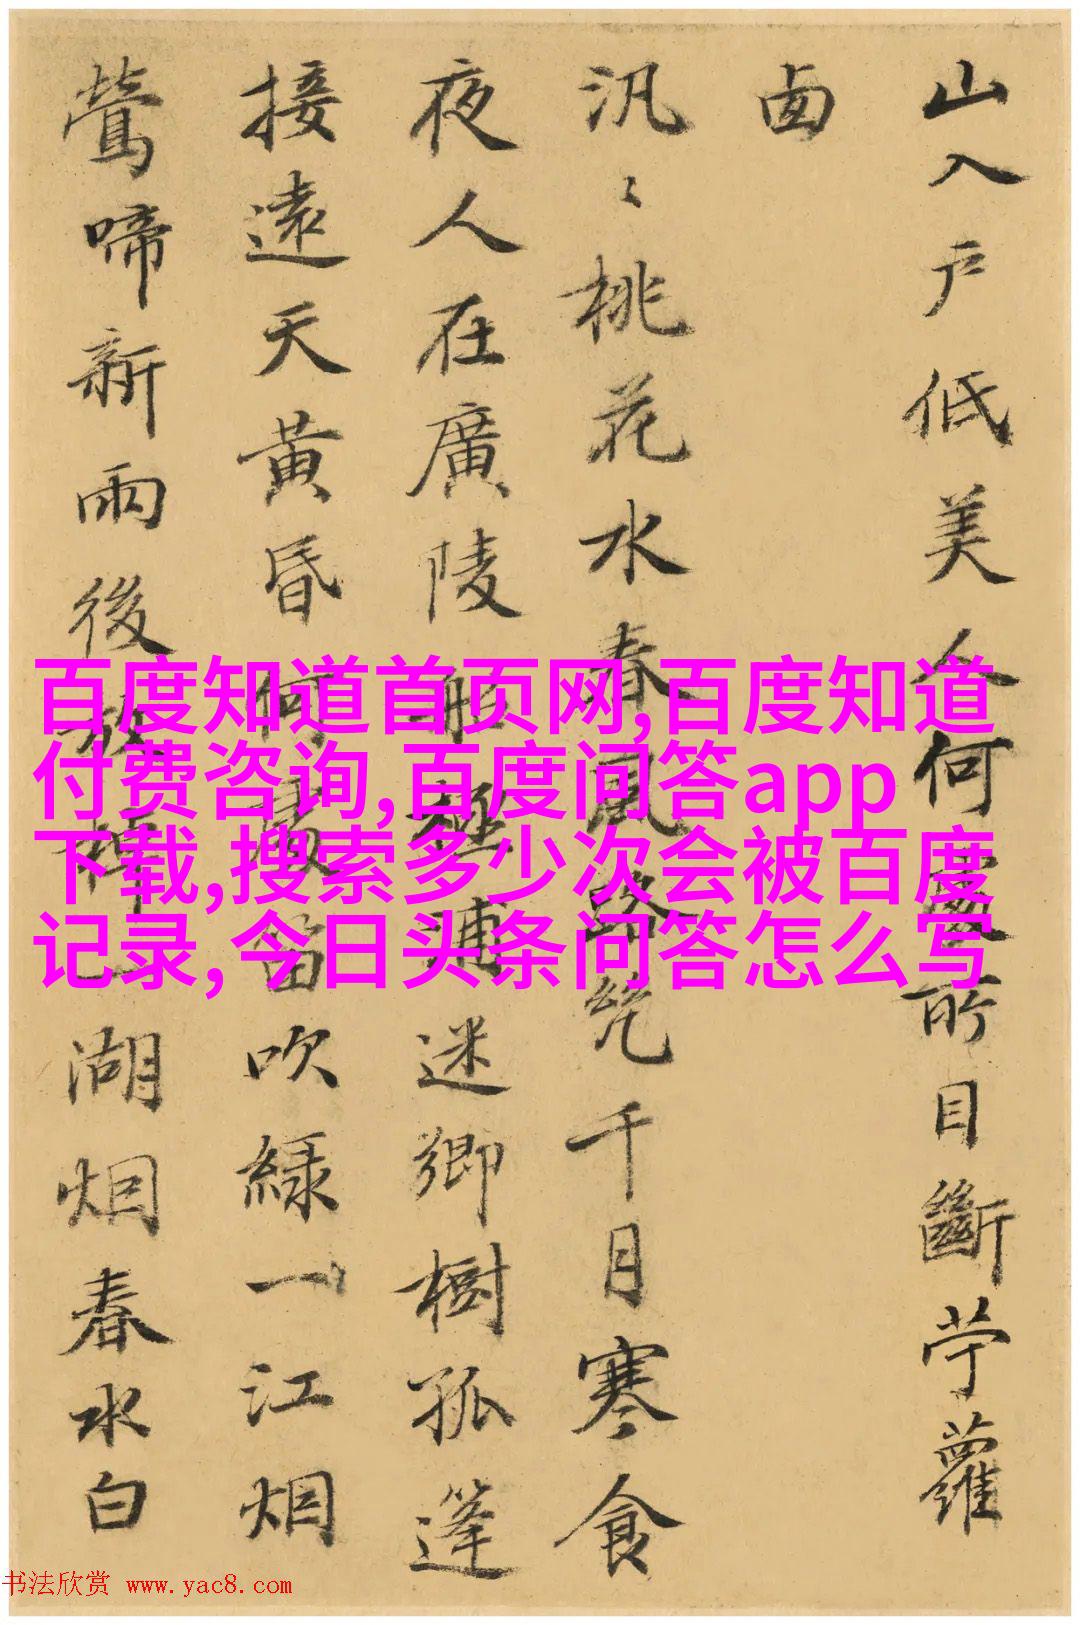 山入户低美人何處所目斷苧蘿
西
汎〻桃花水春風路千月寒食
夜人在廣陵船極浦迷鄉樹孤篷
接遠天黃昏何處笛吹綠一江烟
鶯啼新雨後放棹湖烟春水白
百度知道首页网,百度知道
付费咨询,百度问答app
下载,搜索多少次会被百度
记录,今日头条问答怎么写
书法欣赏 www.yac8.com